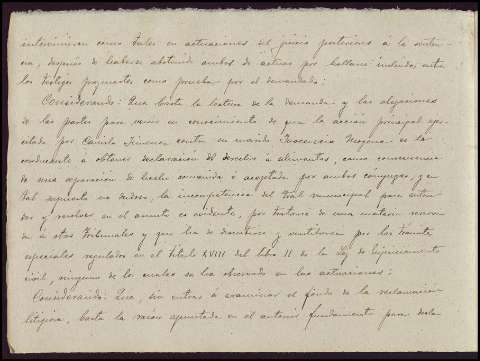 intervinieran como tales en actuaciones del juicio posteriores á la senten-
cia, después de haberse abstenido ambos de actuar por hallarse incluidos entre
los testigos propuestos como prueba por el demandado:
Considerando: Que basta la lectura de la demanda y las alegaciones
de las partes para venir en conocimiento de que la acción principal ejer-
citada por Camila Jimenez contra su marido Inocencio es la
conducente á obtener declaración del derecho á alimentos, como consecuencia
de una separación de hecho consentida ó aceptada por ambos cónyuges, y en
tal supuesto es, la incompetencia del Tribl municipal para enten-
der y resolver en el asunto es evidente, por tratarse de una materia
á otros Tribunales y que ha de discutirse y ventilarse por los trámites
especiales regulados en el título XVIII del libro II de la Ley de Enjuiciamiento
civil, ninguno de los cuales se ha observado en las actuaciones:
Considerando: Que, sin entrar á examinar el fondo de la reclamación
litigiosa, basta la razón apuntada en el anterior fundamento para decla-